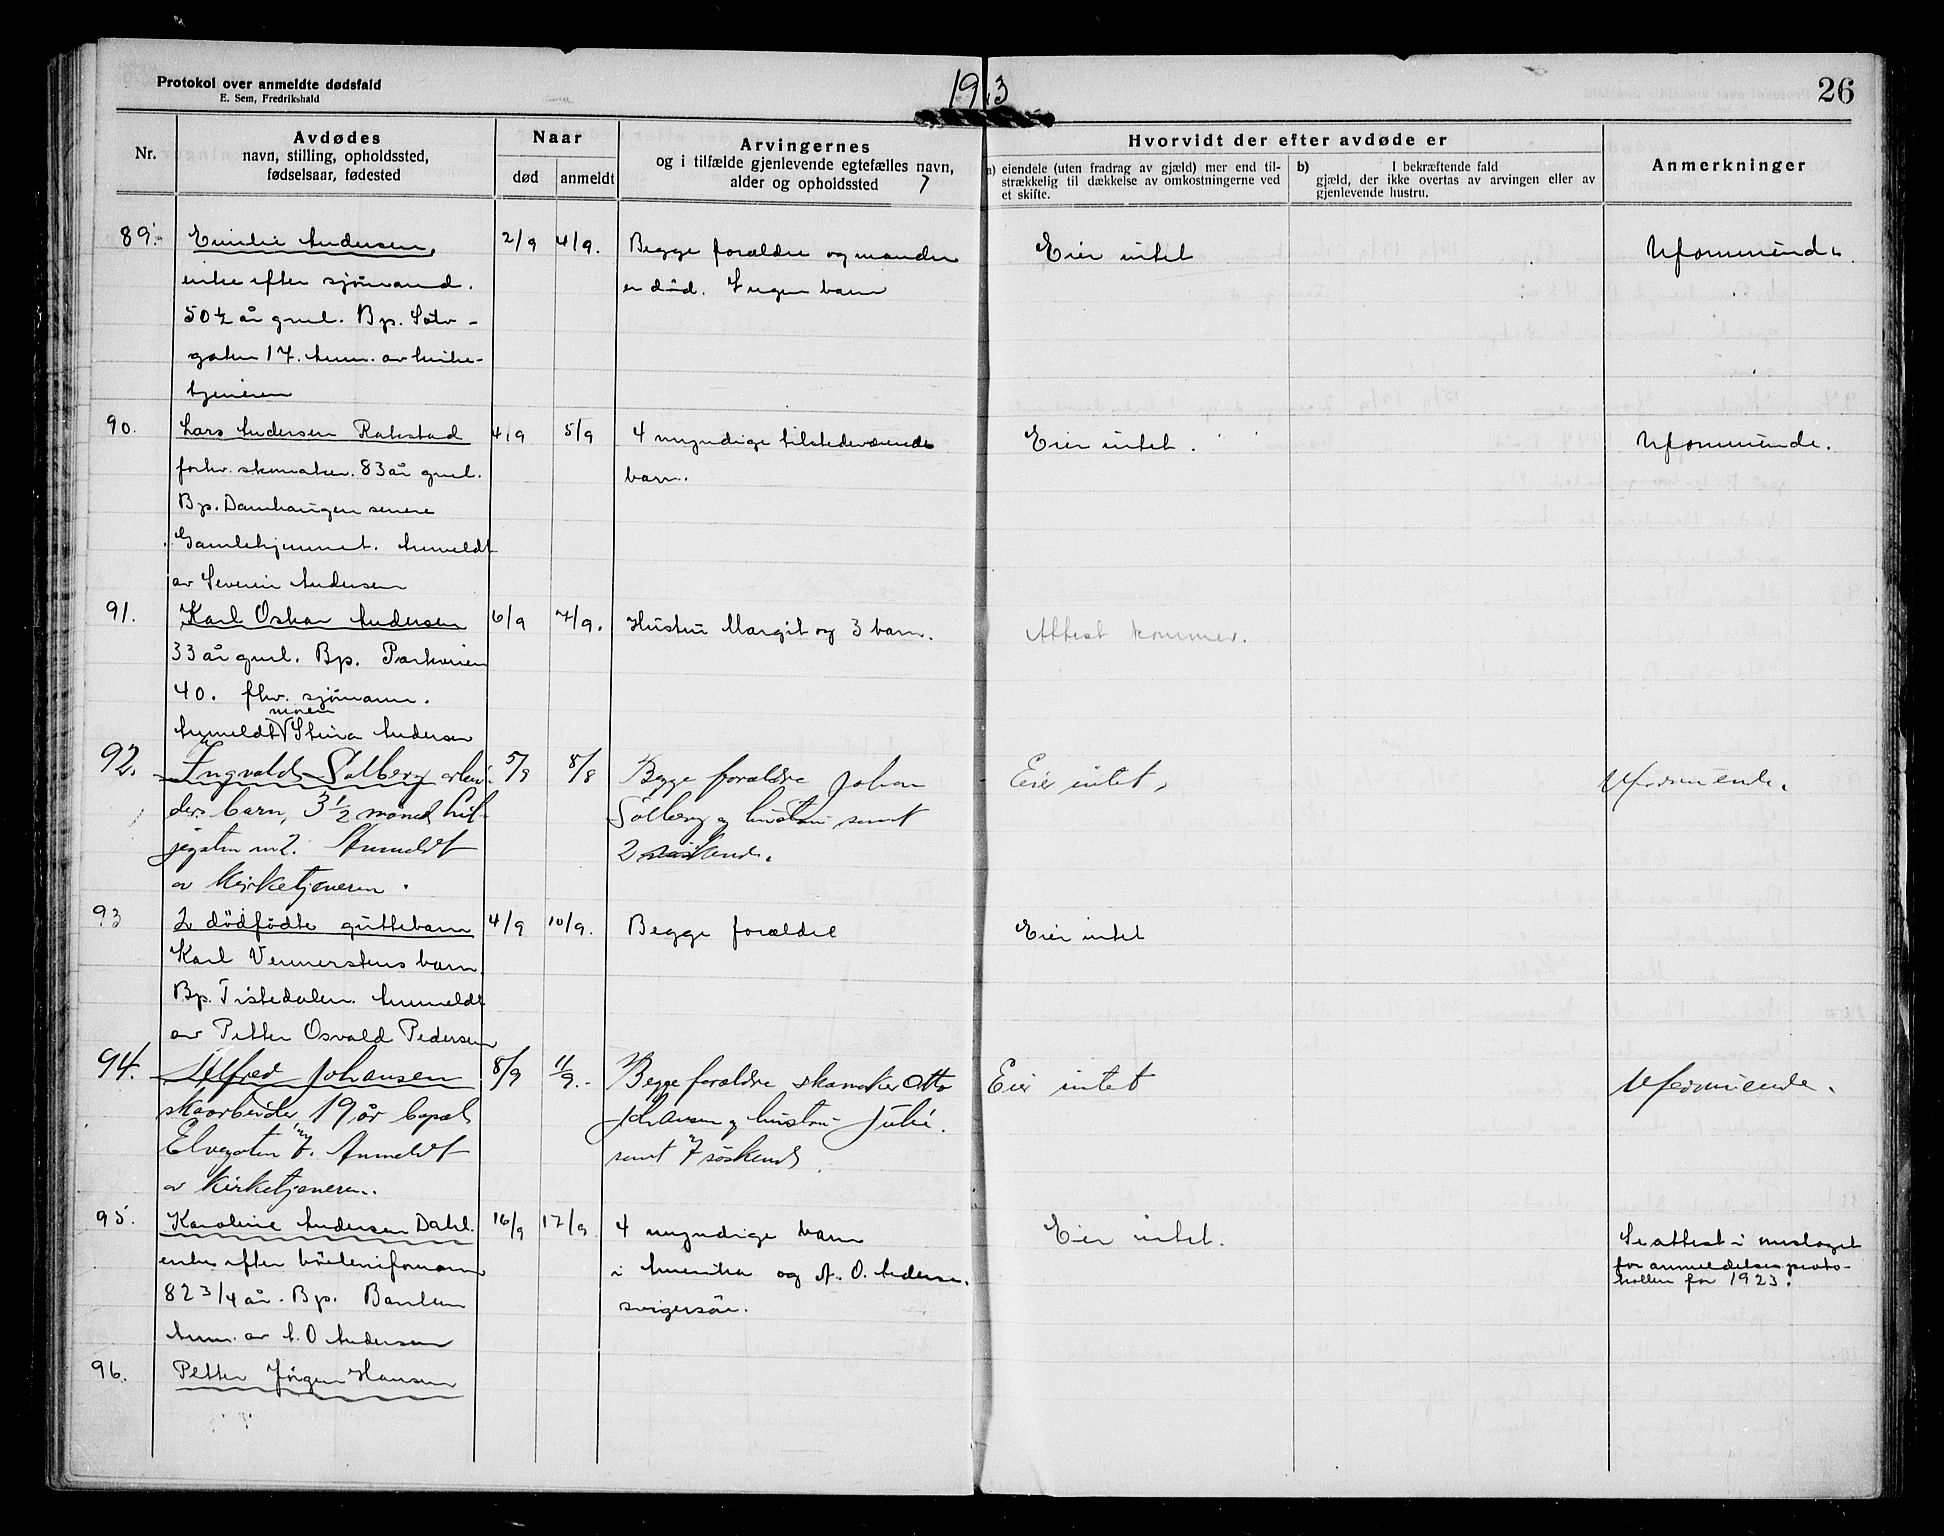 Protokol over anmeldte dødsfald
E. Sem, Fredrikshald
1913
26
Nr.
Avdødes
navn, stilling, opholdssted,
fødselsaar, fødested
Naar
død
anmeldt
Arvingernes
og i tilfælde gjenlevende egtefælles navn,
alder og opholdssted
Hvorvidt der efter avdøde er
a) eiendele (uten fradrag av gjæld) mer end til-
strækkelig til dækkelse av omkostningerne ved
et skifte.
b) I bekræftende fald
gjæld, der ikke overtas av arvingen eller av
gjenlevende hustru.
Anmerkninger
89. Emilie Andersen, 2/9 4/9. Begge forældre og manden Eier intet Uformuende.
enke efter sjømand. er død. Ingen barn
50½ år gml. Bp.
gaten 17. Anm. av kirke-
tjeneren
90. Lars Andersen Rakstad 4/9 5/9 4 myndige tilstedeværende Eier intet. Uformuende.
forhv. skomaker. 83 år gml. barn.
Bp. Damhaugen senere
Gamlehjemmet. Anmeldt
av Severin Andersen
91. Karl Oskar Andersen 6/9 7/9. Hustru Margit og 3 barn. Attest kommer.
33 år gml. Bp. Parkveien
40. fhv. sjømann.
moren
Anmeldt Stina Andersen
92. Ingvald Solberg arbei- 5/9 8/8 Begge forældre Johan Eier intet, Uformuende.
ders barn, 3½ måned Sølberg og hustru samt
gaten n 2. Anmeldt 2 søskende.
av Kirketjeneren.
93 2 dödfödte guttebarn 4/9 10/9. Begge forældre Eier intet
Karl Vennerstens barn.
Bp. Tistedalen. Anmeldt
av Petter Osvald Pedersen
94. Alfred Johansen 8/9 11/9. Begge forældre skomaker Otto Eier intet Uformuende.
skoarbeider, 19 år bopæl Johansen og hustru Julie.
Elvegaten 7. Anmeldt samt 7 søskende.
av Kirketjeneren.
95. Karoline Andersen Dahl. 16/9 17/9 4 myndige barn Eier intet. Se attest i omslaget
enke efter i Amerika og A. O. Andersen. for anmeldelsesproto-
82 3/4 år. Bp. Banken svigersön. kollen for 1923.
Anm. av A. O Andersen
96. Petter Jörgen Hansen